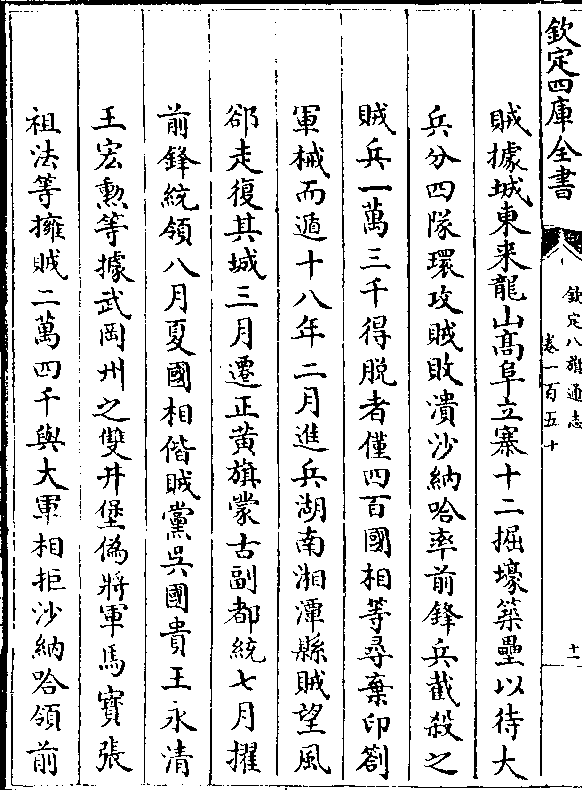 欽定四庫全書
欽定八旗通志
卷一百五十
十一
賊據城東来龍山髙阜立寨十二掘壕築壘以待大
兵分四隊環攻賊敗潰沙納哈率前鋒兵截殺之
賊兵一萬三千得脫者僅四百國相等尋棄印劄
軍械而遁十八年二月進兵湖南湘潭縣賊望風
郤走復其城三月遷正黄旗蒙古副都統七月擢
前鋒統領八月夏國相偕賊黨吳國貴王永清
王宏勲等據武岡州之雙井堡偽將軍馬寳張
祖法等擁賊二萬四千與大軍相拒沙納哈領前